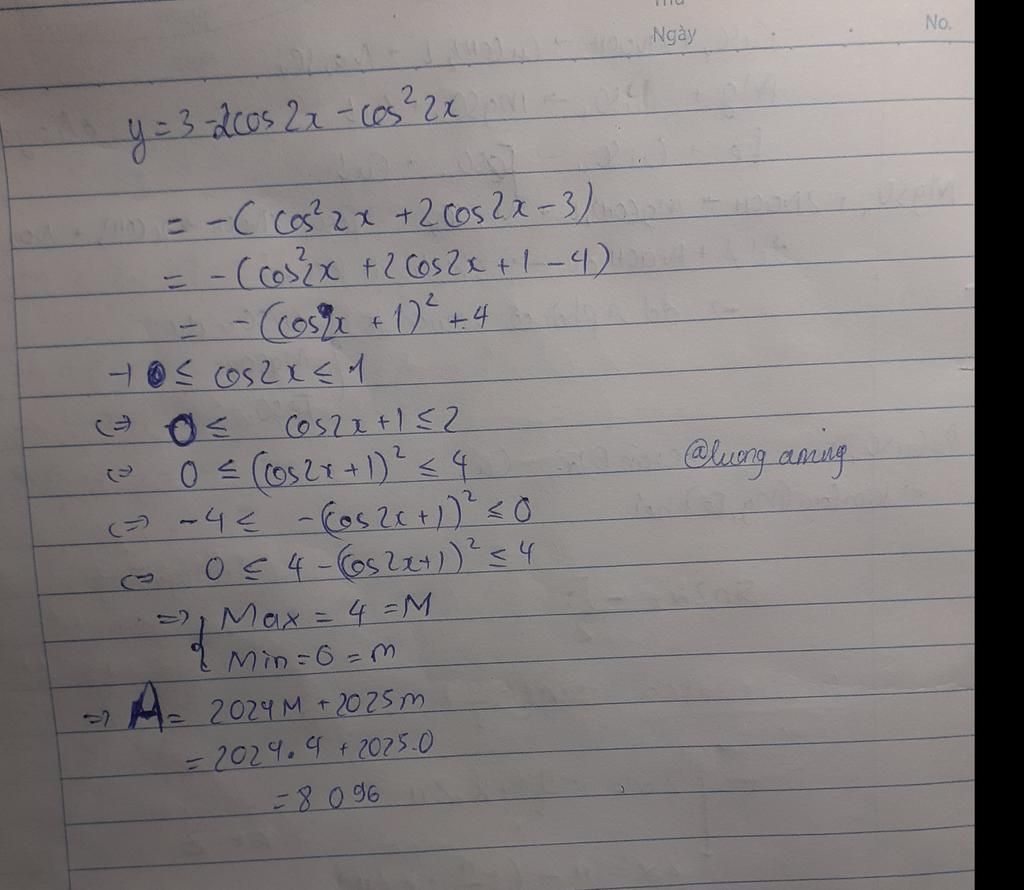 Thứ
Ngày
No.
y = 3 - 2cos2x - cos²2x
= -(cos²2x + 2cos2x - 3)
= -(cos²2x + 2cos2x + 1 - 4)
= -(cos2x + 1)² + 4
→ 0 ≤ cos2x ≤ 1
⇔ 0 ≤ cos2x + 1 ≤ 2
⇔ 0 ≤ (cos2x + 1)² ≤ 4
@luong aming
⇔ -4 ≤ -(cos2x + 1)² ≤ 0
⇔ 0 ≤ 4 - (cos2x + 1)² ≤ 4
⇒ { Max = 4 = M
Min = 0 = m
⇒ A = 2024M + 2025m
= 2024.4 + 2025.0
= 8096